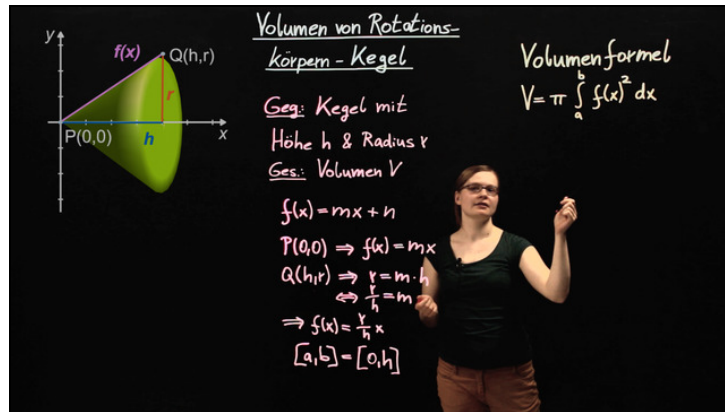 y
f(x)
Q(h,r)
r
P(0,0)
h
x
Volumen von Rotations-
körpern - Kegel
Geg.: Kegel mit
Höhe h & Radius r
Ges.: Volumen V
f(x) = mx + n
P(0,0) ⇒ f(x) = mx
Q(h,r) ⇒ r = m · h
⇔ r/h = m
⇒ f(x) = r/h x
[a,b] = [0,h]
Volumenformel
V = π ∫_a^b f(x)² dx